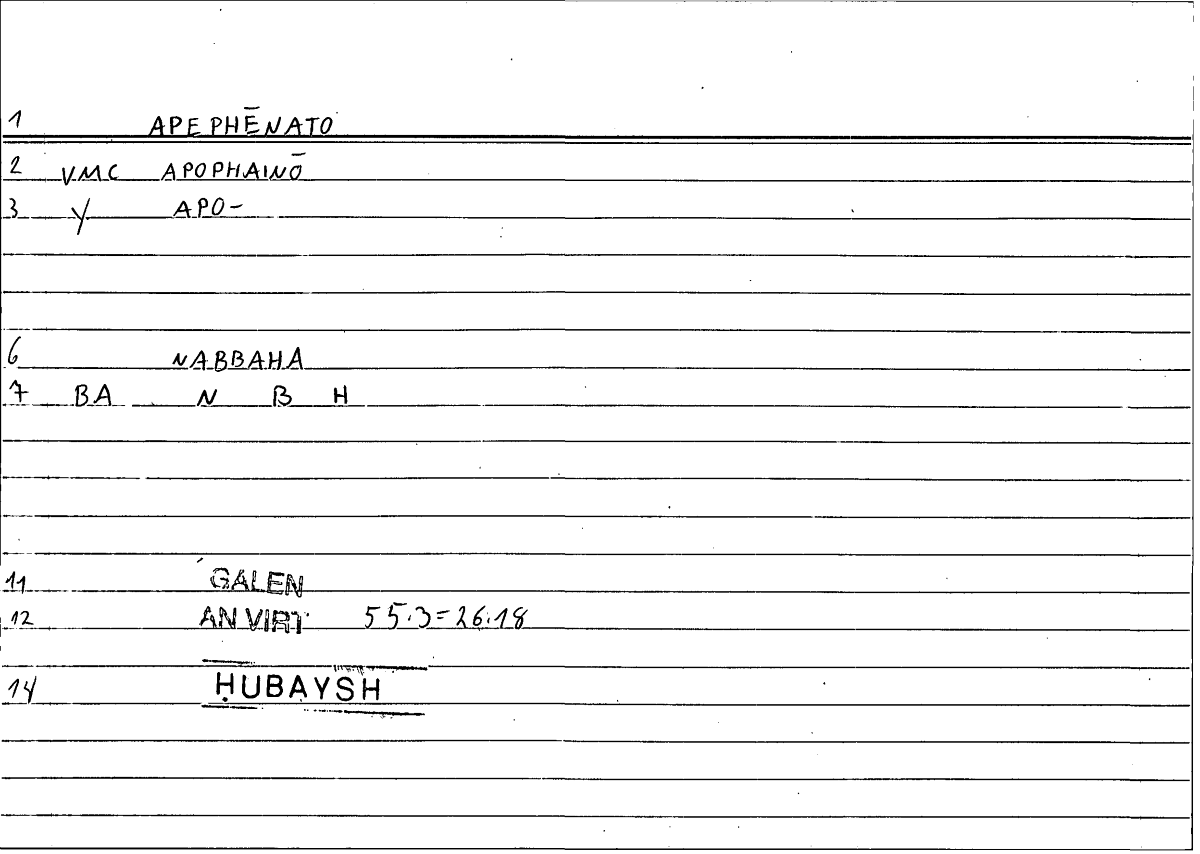 1 APEPHĒNATO
2 VMC APOPHAINŌ
3 Y APO-
6 NABBAHA
7 BA N B H
11 GALEN
12 AN VIRT 55.3=26.18
14 ḤUBAYSH